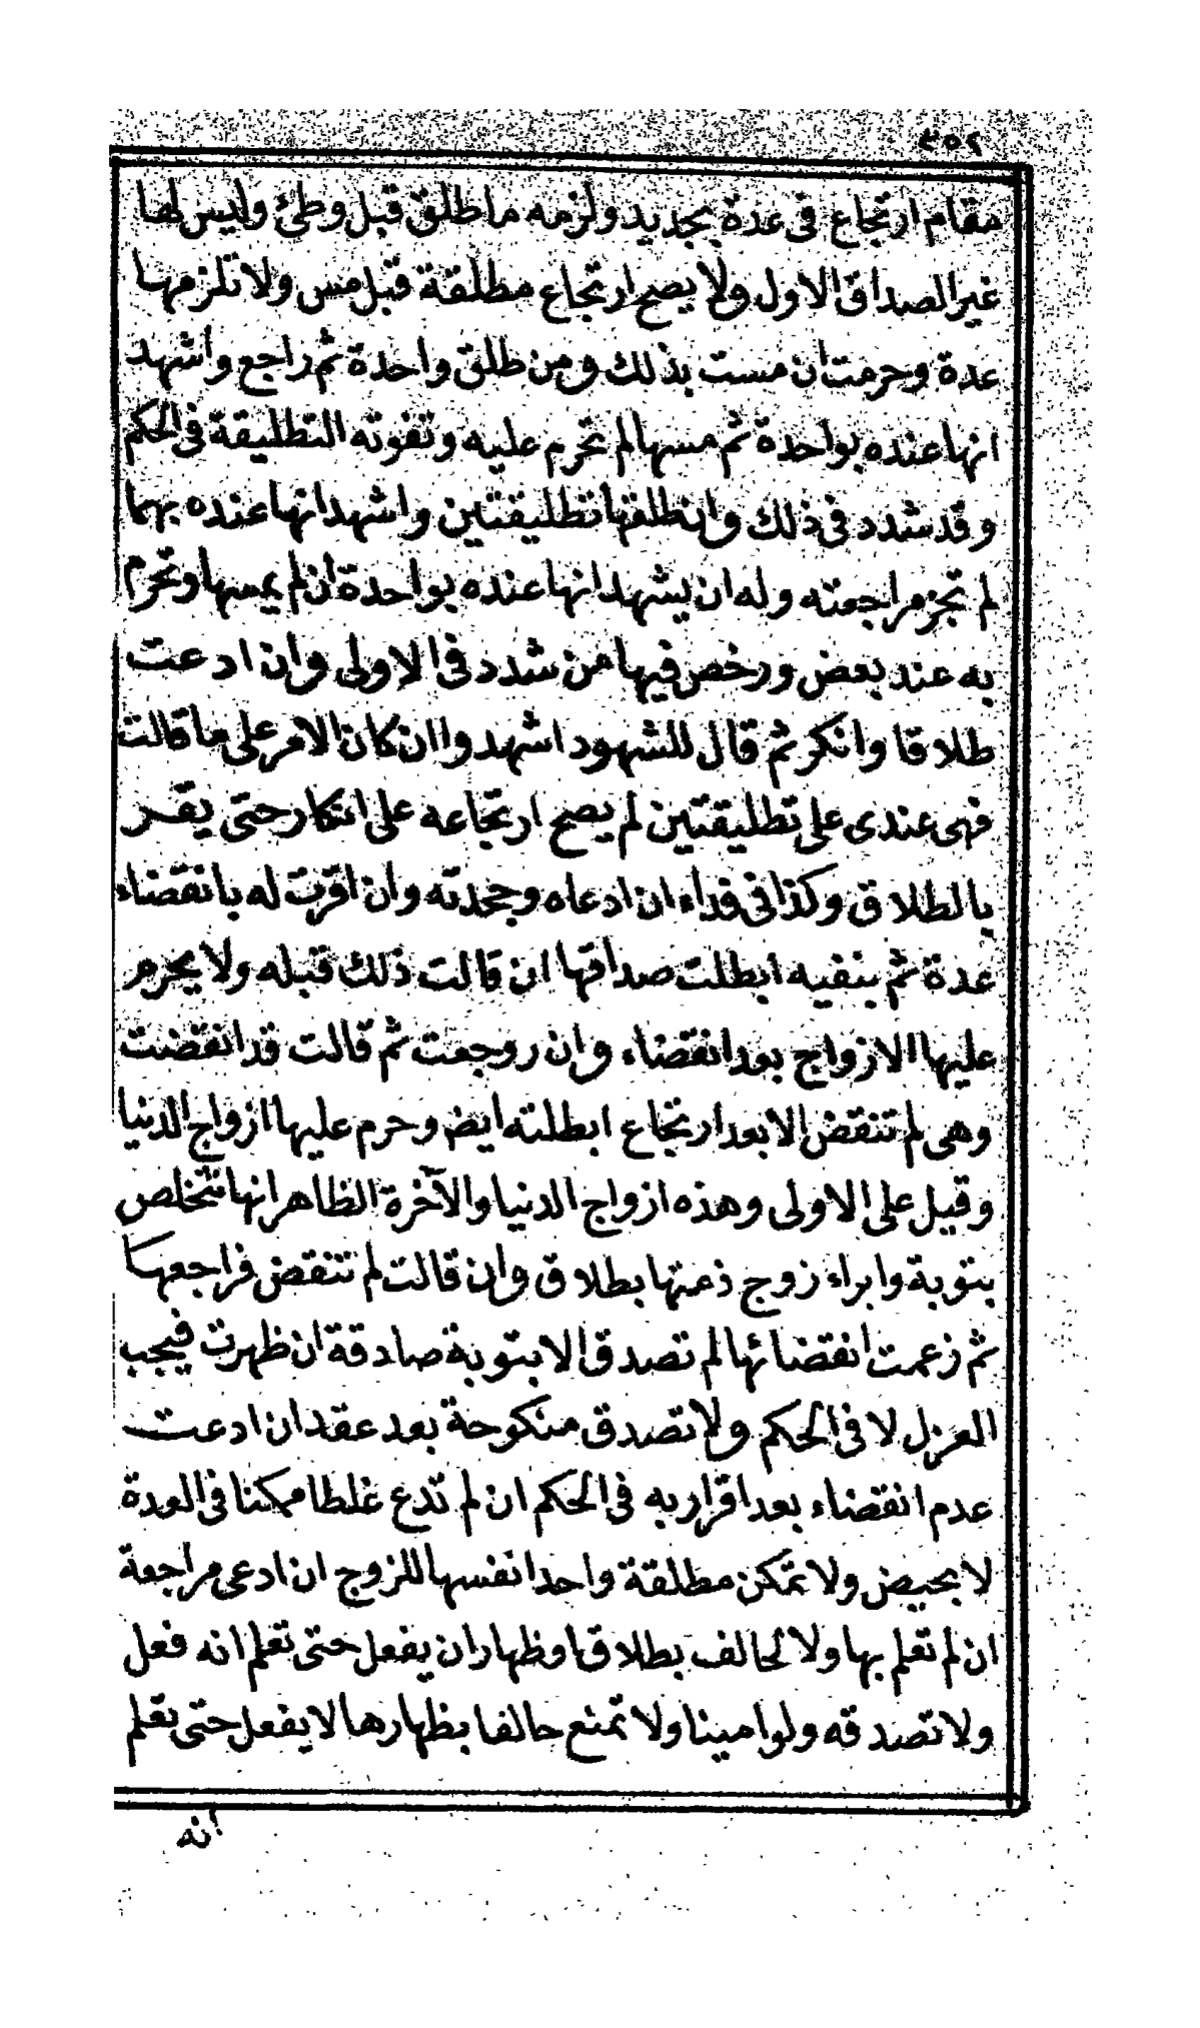 ٣٥٢
مقام ارتجاع فى عدة بجديد ولزمه ما طلق قبل وطئ وليس لها
غير الصداق الاول ولا يصح ارتجاع مطلقة قبل مس ولا تلزمها
عدة وحرمت ان مست بذلك ومن طلق واحدة ثم راجع واشهد
انها عنده بواحدة ثم مسها لم تحرم عليه وتفوته التطليقة فى الحكم
وقد شدد فى ذلك وان طلقها تطليقتين واشهد انها عنده بهما
لم تجز مراجعته وله ان يشهد انها عنده بواحدة ان لم يمسها وتحرم
به عند بعض ورخص فيها من شدد فى الاولى وان ادعت
طلاقا وانكر ثم قال للشهود اشهدوا ان كان الامر على ما قالت
فهى عندى على تطليقتين لم يصح ارتجاعه على انكار حتى يقر
بالطلاق وكذا فى فداء ان ادعاه وجحدته وان اقرت له بانقضاء
عدة ثم بنفيه ابطلت صداقها ان قالت ذلك قبله ولا يحرم
عليها الازواج بعد انقضاء وان روجعت ثم قالت قد انقضت
وهى لم تنقض الا بعد ارتجاع ابطلته ايض وحرم عليها ازواج الدنيا
وقيل على الاولى وهذه ازواج الدنيا والآخرة الظاهر انها تتخلص
بتوبة وابراء زوج ذمتها بطلاق وان قالت لم تنقض فراجعها
ثم زعمت انقضائها لم تصدق الا بتوبة صادقة ان ظهرت فيجب
العزل لا فى الحكم ولا تصدق منكوحة بعد عقد ان ادعت
عدم انقضاء بعد اقرار به فى الحكم ان لم تدع غلطا ممكنا فى العدة
لا بحيض ولا تمكن مطلقة واحدا نفسها للزوج ان ادعى مراجعة
ان لم تعلم بها ولا لحالف بطلاق او ظهار ان يفعل حتى تعلم انه فعل
ولا تصدقه ولو امينا ولا تمنع حالفا بظهارها لا يفعل حتى تعلم
انه